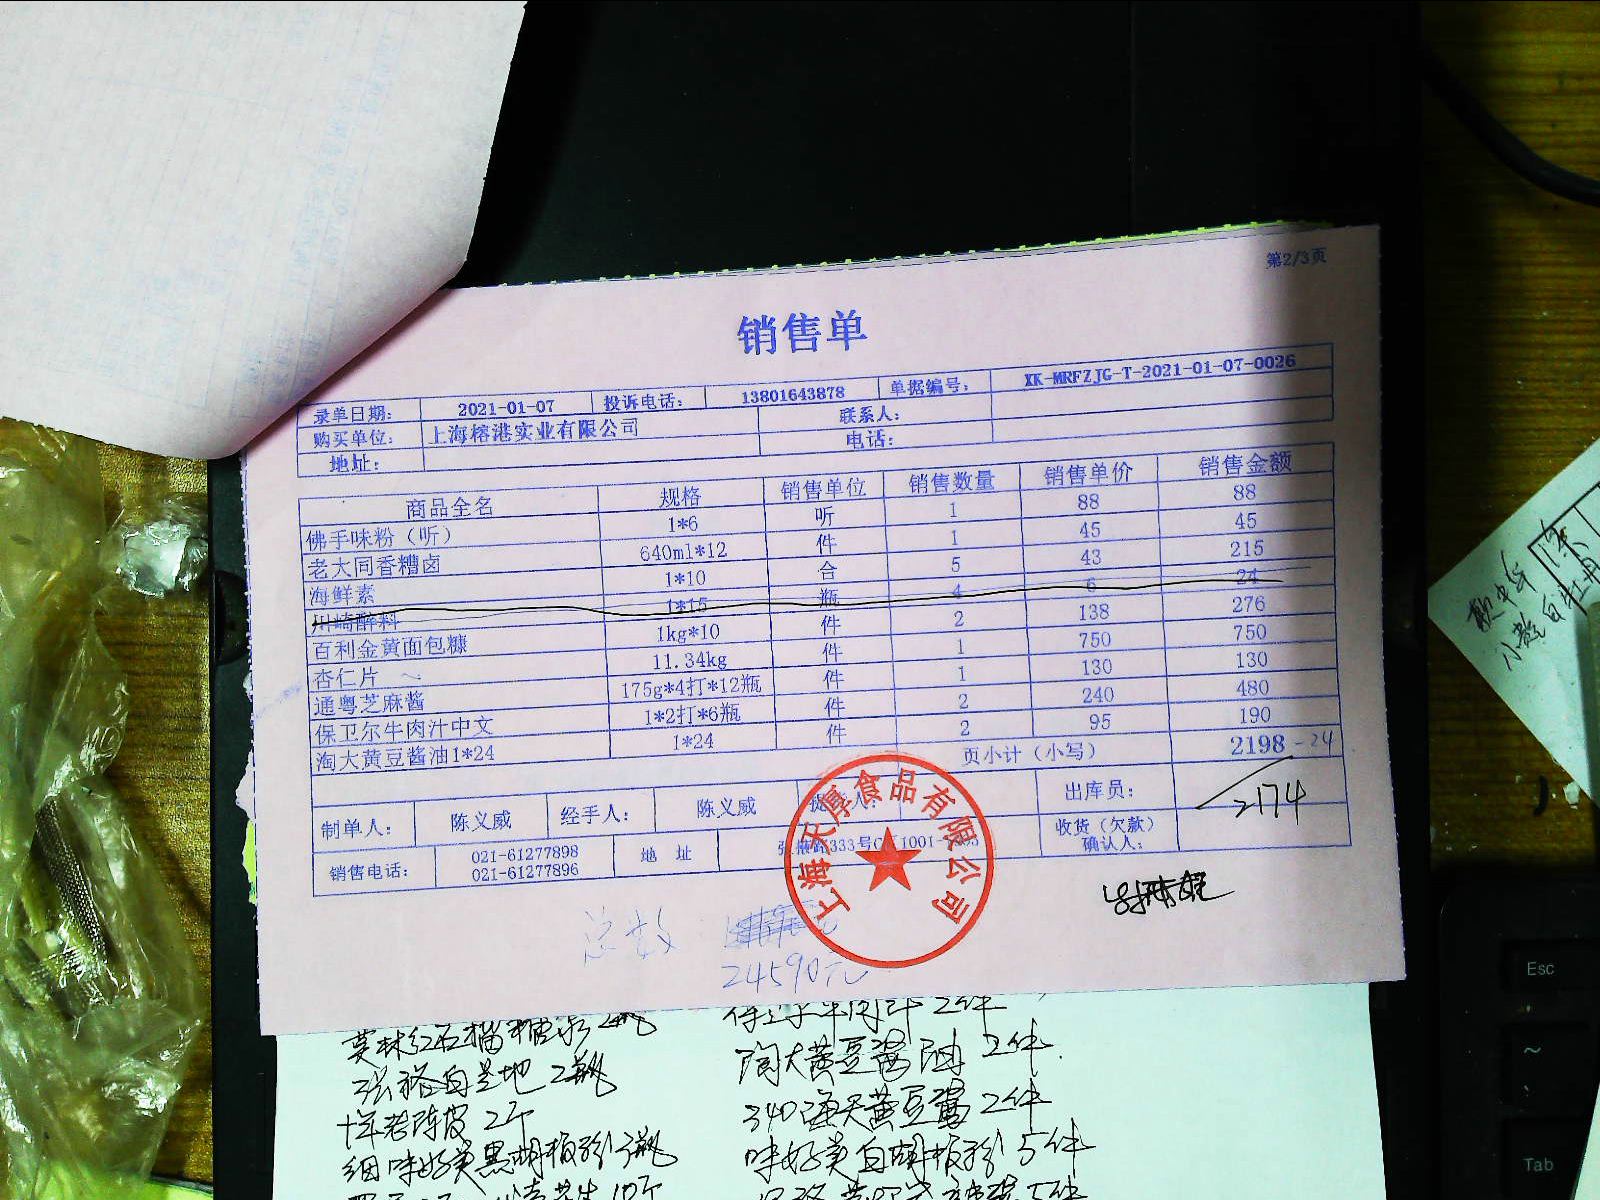 第2/3页
销售单
录单日期： 2021-01-07 投诉电话： 13801643878 单据编号： XK-MRFZJG-T-2021-01-07-0026
购买单位： 上海榕港实业有限公司 联系人：
地址： 电话：
商品全名 规格 销售单位 销售数量 销售单价 销售金额
佛手味粉（听） 1*6 听 1 88 88
老大同香糟卤 640ml*12 件 1 45 45
海鲜素 1*10 合 5 43 215
川崎醉料 1*15 瓶 4 6 24
百利金黄面包糠 1kg*10 件 2 138 276
杏仁片 11.34kg 件 1 750 750
通粤芝麻酱 175g*4打*12瓶 件 1 130 130
保卫尔牛肉汁中文 1*2打*6瓶 件 2 240 480
淘大黄豆酱油1*24 1*24 件 2 95 190
页小计（小写） 2198 -24
2174
制单人： 陈义威 经手人： 陈义威 人： 出库员：
销售电话： 021-61277898 地 址 333号 1001- 收货（欠款）
021-61277896 确认人：
上海天厚食品有限公司
总数
24590元
2件
淘大黄豆酱油 2件
2瓶
十年老陈皮 2个
340海天黄豆酱 2件
细味好美黑胡椒粉 3瓶
味好美白胡椒粉 5件
Esc
~
Tab